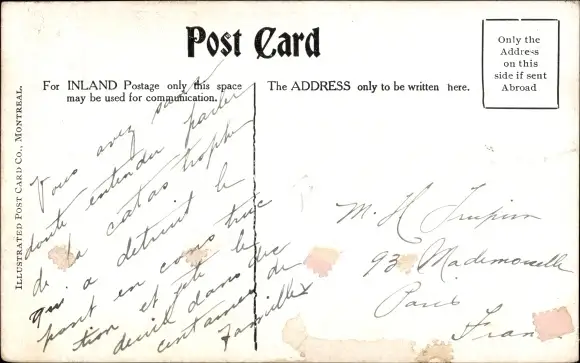 Post Card
For INLAND Postage only this space
may be used for communication.
The ADDRESS only to be written here.
Only the
Address
on this
side if sent
Abroad
ILLUSTRATED POST CARD CO., MONTREAL.
Vous avez sans
doute entendu parler
de la catastrophe
qui a détruit le
pont en construc
tion et jeté le
deuil dans des
centaines de
familles
M. H
93 Mademoiselle
Paris
Fran